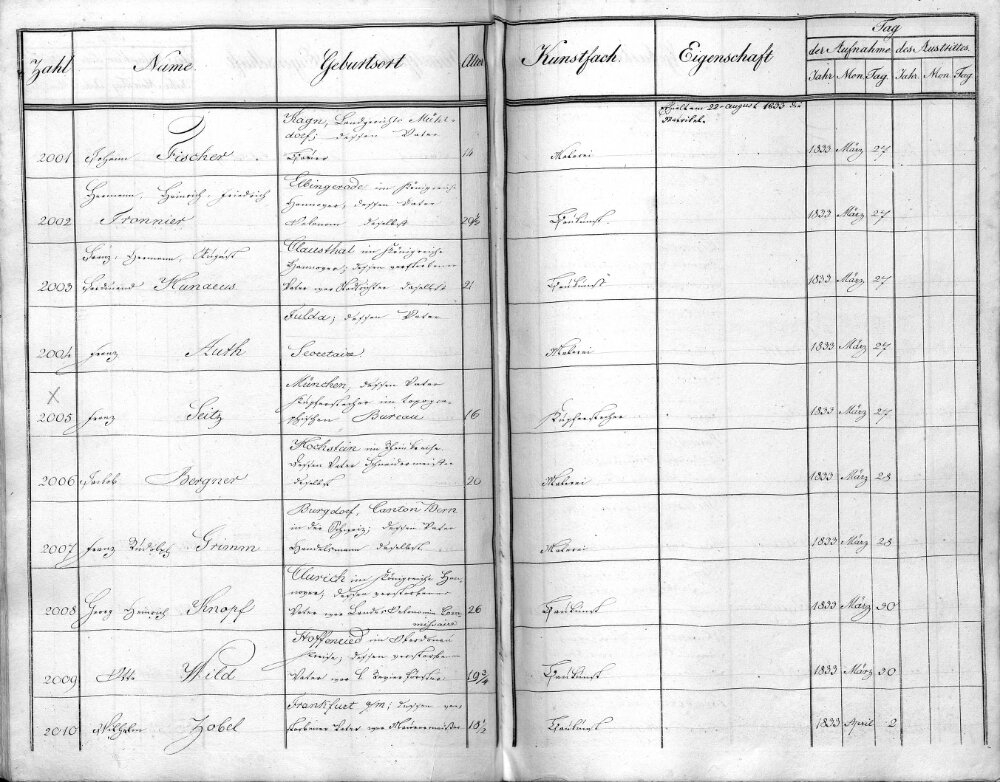 Zahl Name Geburtsort Alter Kunstfach. Eigenschaft Tag
der Aufnahme des Austrittes.
Jahr Mon. Tag. Jahr. Mon. Tag
erhielt am 22 August 1833 die
Matrikel.
Hagn, Landgerichts Mühl
dorf; dessen Vater
2001 Johann Fischer 14 Malerei 1833 März 27
Hermann, Heinrich, Friedrich Elbingerode im Königreich
Hannover, dessen Vater
2002 Fronnier daselbst Baukunst 1833 März 27
Hermann, August Clausthal im Königreiche
Hannover, dessen verstorbener
2003 Ferdinand Hunaeus Vater war daselbst 21 Baukunst 1833 März 27
Fulda, dessen Vater
2004 Franz Auth Secretair Malerei 1833 März 27
X München, dessen Vater
Kupferstecher im topogra-
2005 Franz Seitz phischen Bureau 16 Kupferstecher 1833 März 27
Hochstein im Rheinkreise
dessen Vater Schneidermeister
2006 Jakob Bergner daselbst 20 Malerei 1833 März 28
Burgdorf, Canton Bern
in der Schweiz; dessen Vater
2007 Franz Rudolph Grimm Handelsmann daselbst. Malerei 1833 März 28
Aurich im Königreiche Han-
nover, dessen verstorbener
2008 Georg Heinrich Knopf Vater war Oekonomie Com 26 Baukunst 1833 März 30
missair
Hoffenried im Oberdonau
Kreise, dessen verstorbener
2009 Otto Wild Vater war Förster 19 3/4 Baukunst 1833 März 30
Frankfurt a/m; dessen ver-
2010 Wilhelm Zobel storbener Vater war Maurermeister 18 1/2 Baukunst 1833 April 2